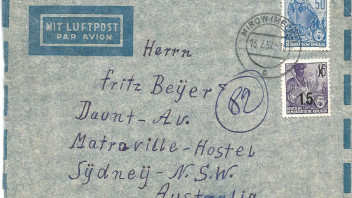 MIT LUFTPOST
PAR AVION
MIROW (MECKL
50
15
Herrn
Fritz Beÿer
82
Daunt-Av.
Matraville-Hostel
Sÿdneÿ-N.S.W.
Australia